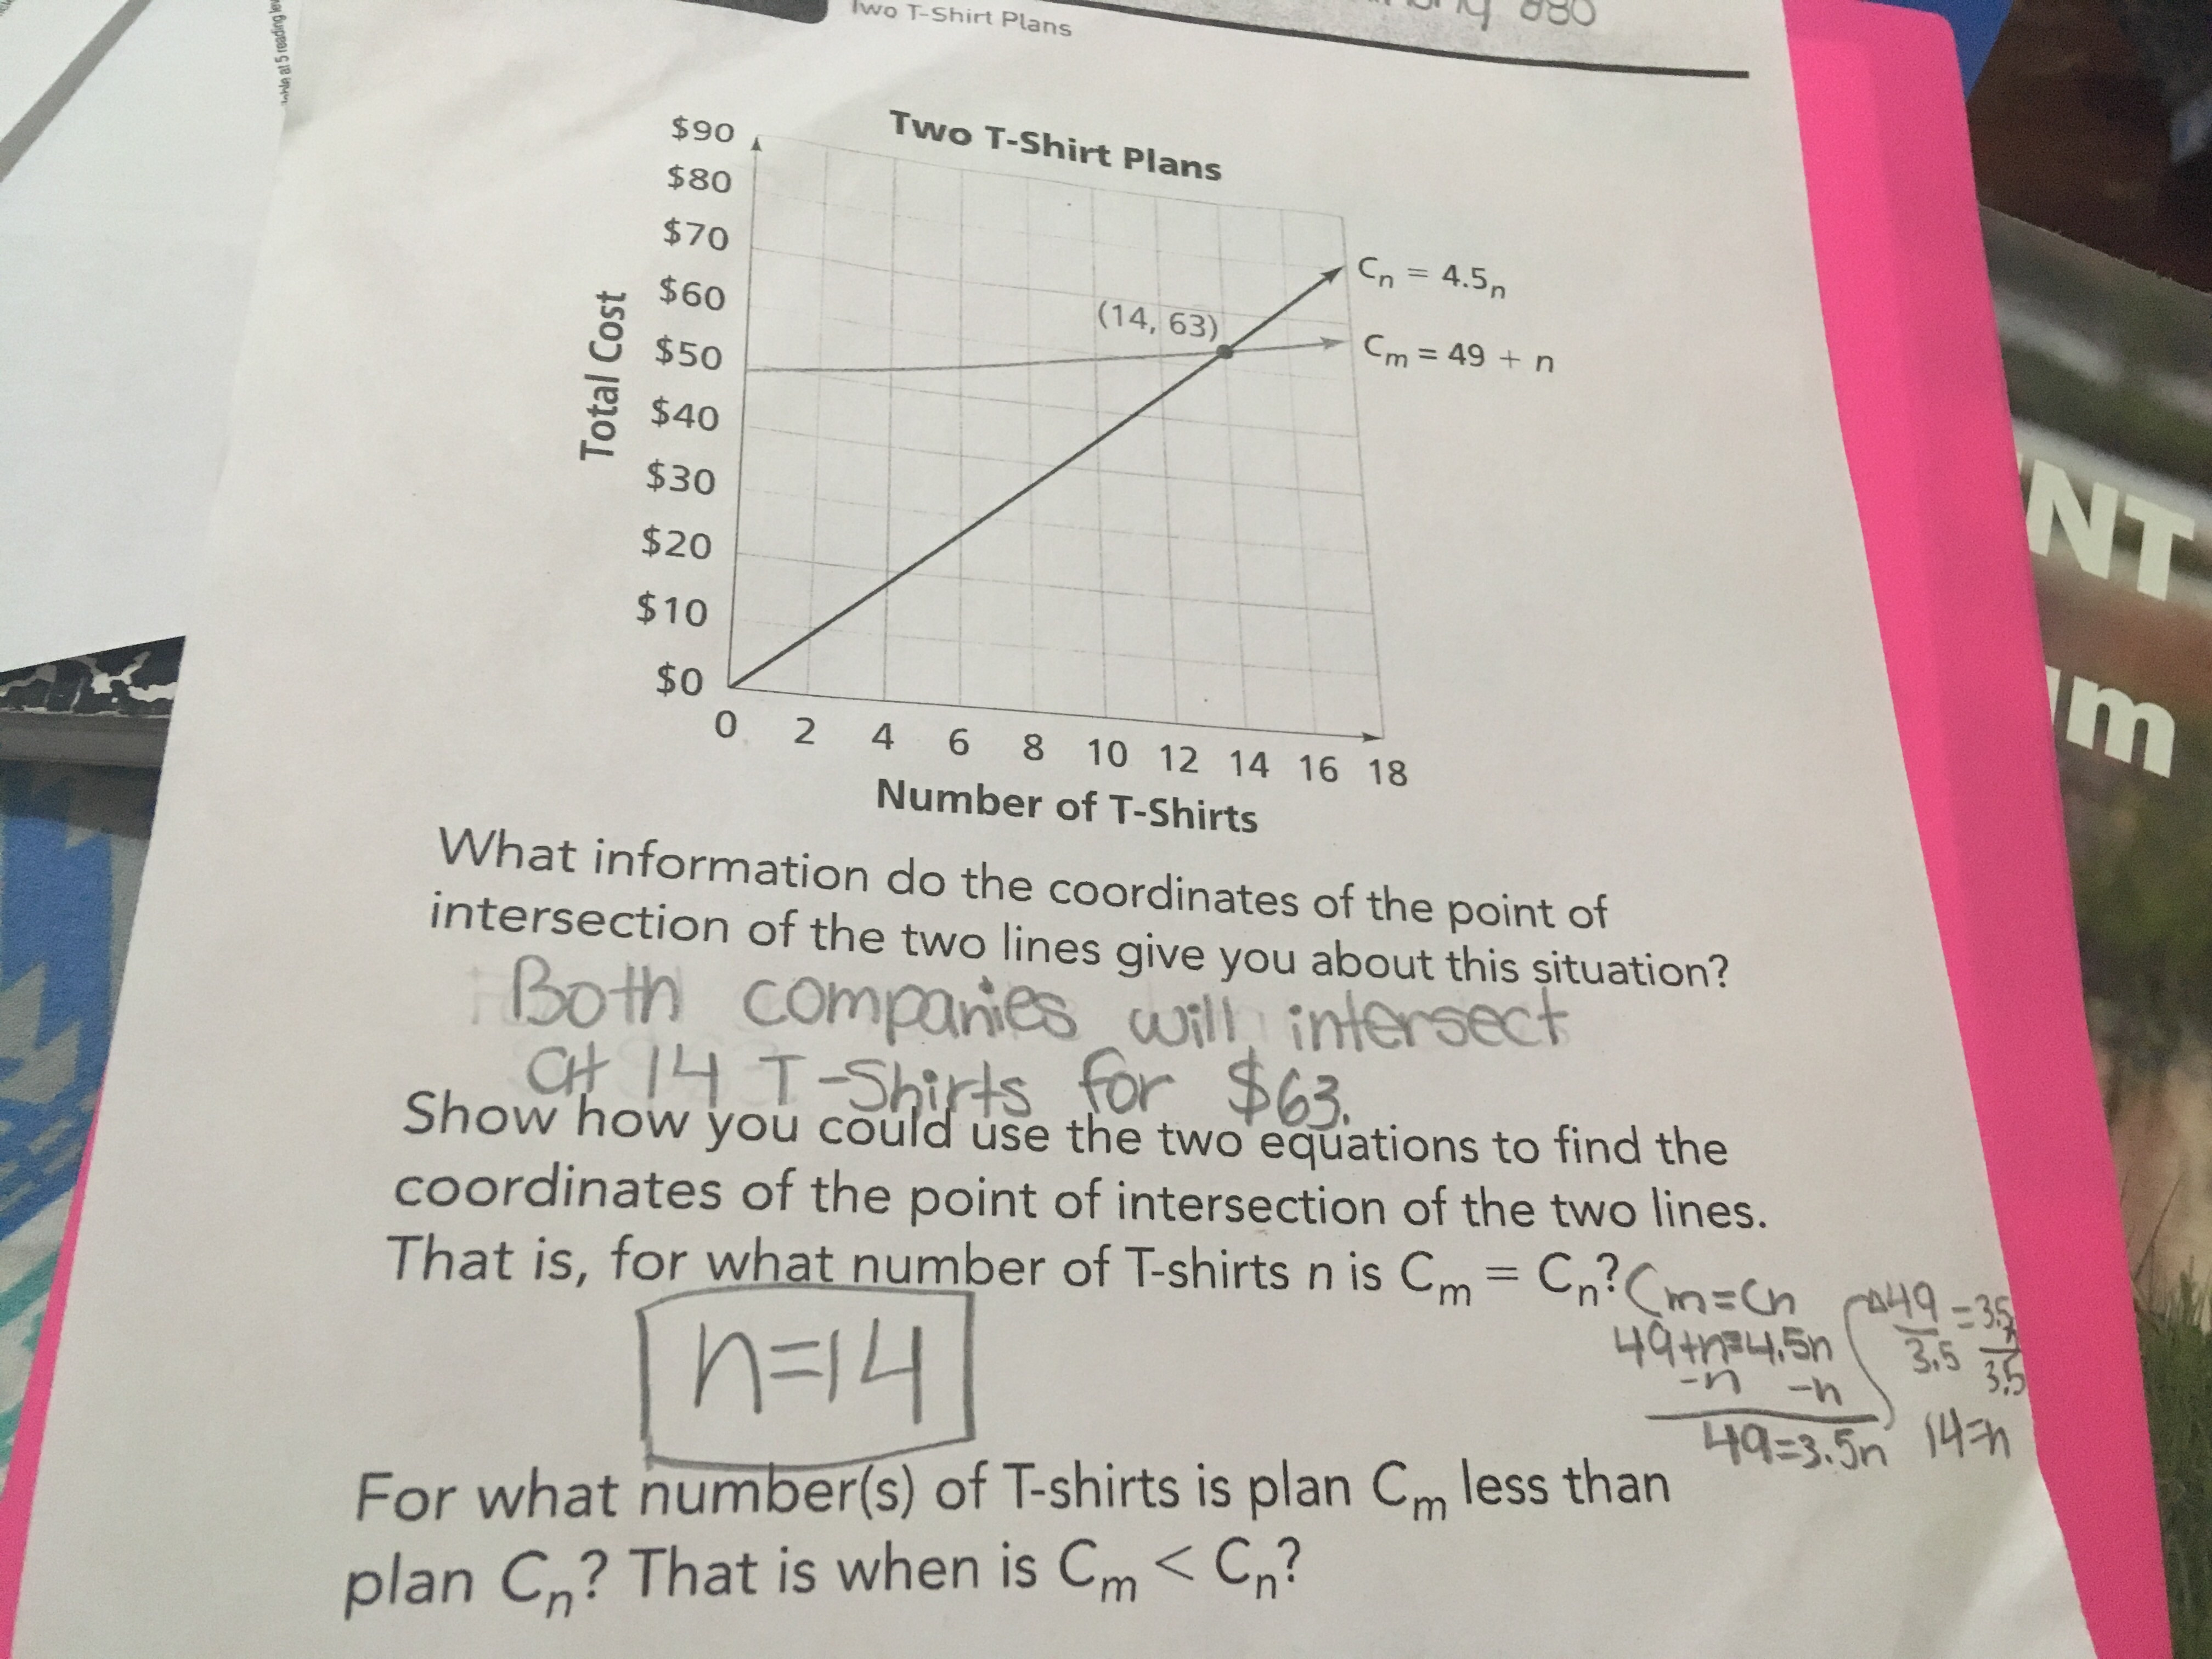 Two T-Shirt Plans
Two T-Shirt Plans
$90
$80
$70
$60
$50
$40
$30
$20
$10
$0
Total Cost
(14, 63)
Cn = 4.5n
Cm = 49 + n
0 2 4 6 8 10 12 14 16 18
Number of T-Shirts
What information do the coordinates of the point of
intersection of the two lines give you about this situation?
Both companies will intersect
at 14 T-Shirts for $63.
Show how you could use the two equations to find the
coordinates of the point of intersection of the two lines.
That is, for what number of T-shirts n is Cm = Cn?
n=14
Cm=Cn
49+n=4.5n
-n -n
49=3.5n
49 = 3.5
3.5 3.5
14=n
For what number(s) of T-shirts is plan Cm less than
plan Cn? That is when is Cm < Cn?
NT
m